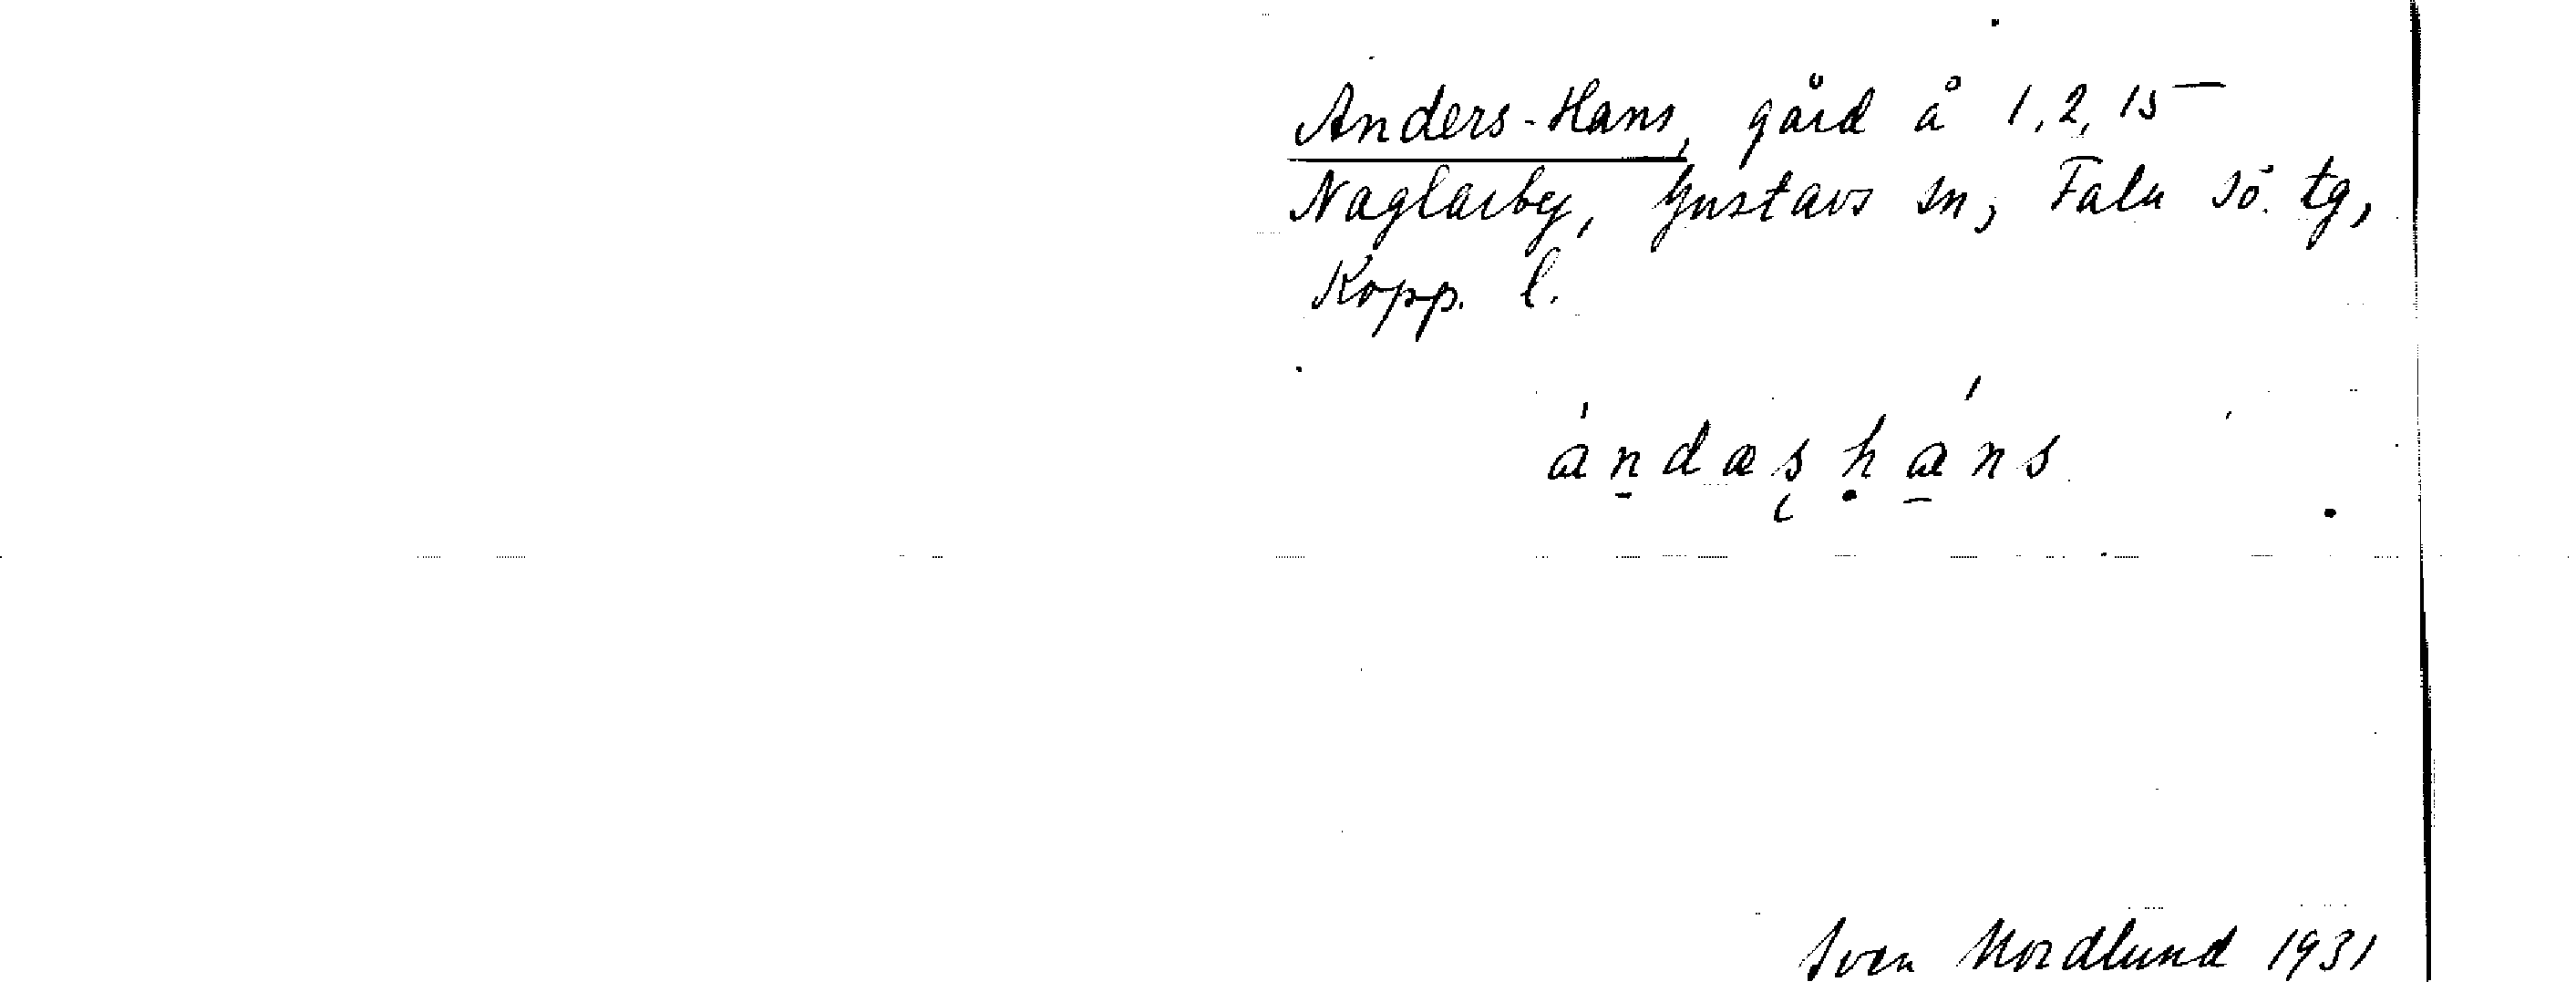 Anders-Hans, gård å 1, 2, 15
Naglarby, Gustavs sn, Falu sö. tg,
Kopp. l.
andæshans
Sven Nordlund 1931